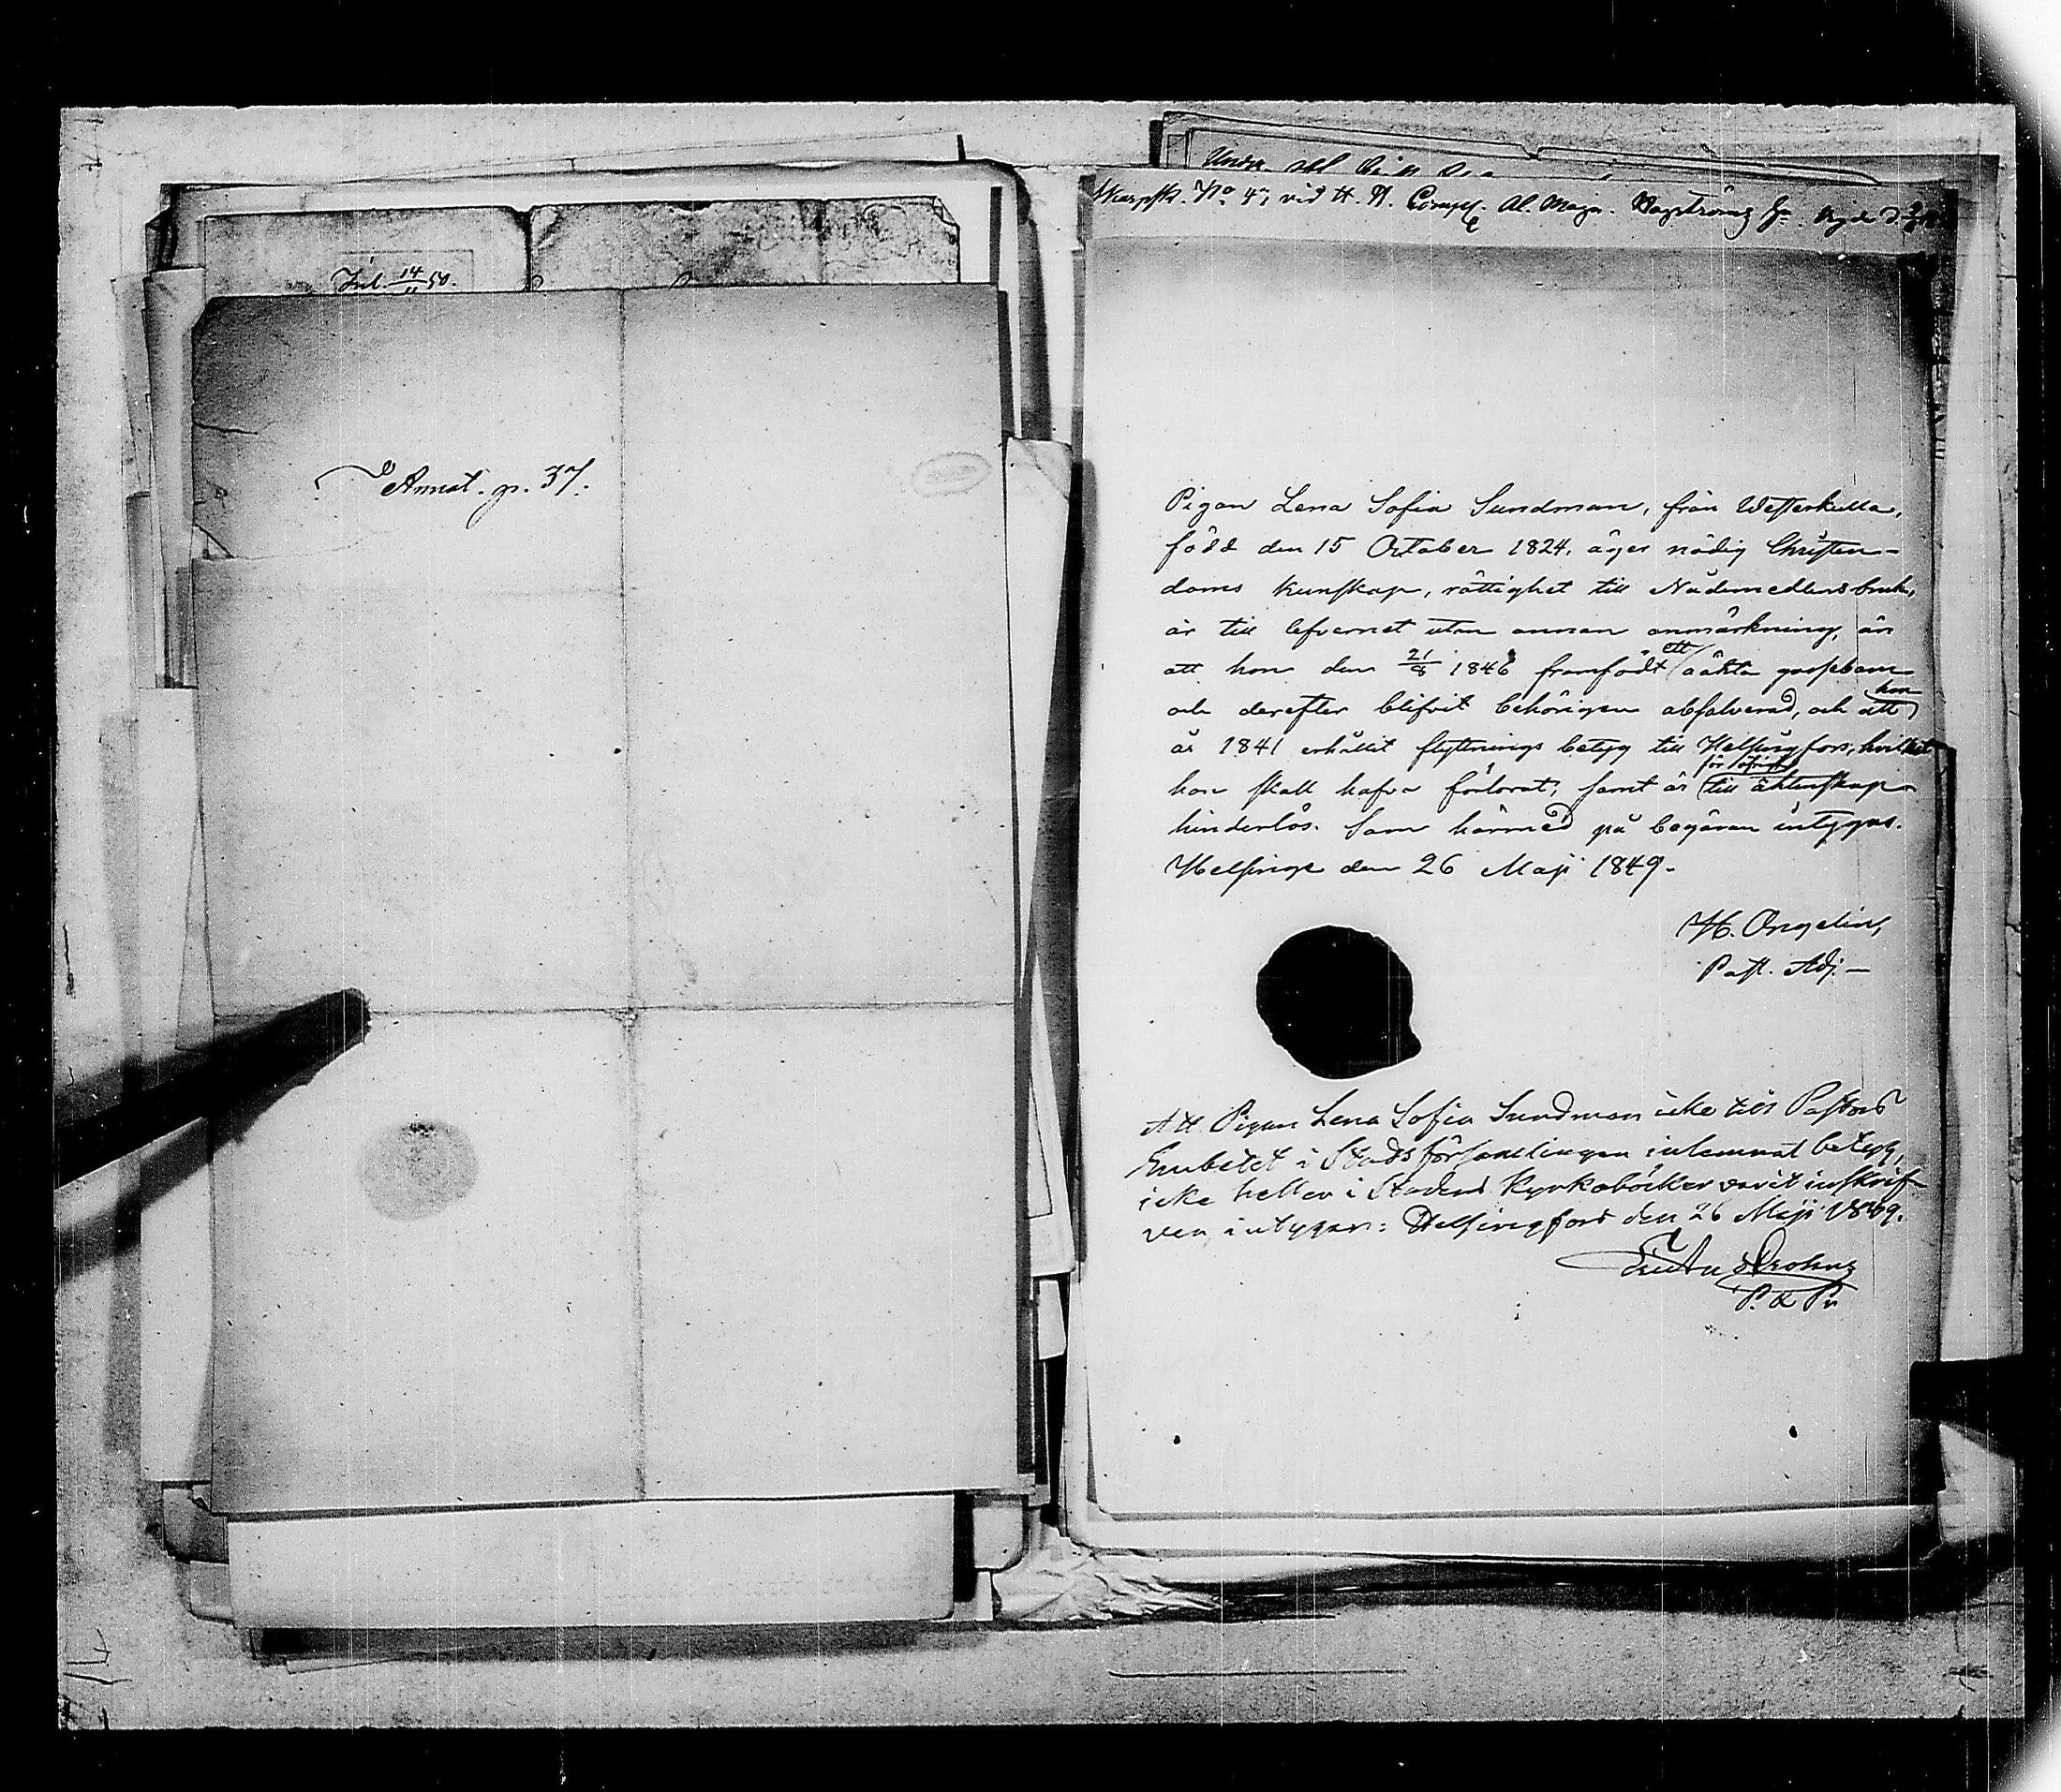 Inl. 14/11 50.
Annot. p. 37.
Skarpsk. No 47 vid H. N. Comp. Al. Magn. Hagströms
Pigan Lena Sofia Sundman, från Westerkulla,
född den 15 October 1824, äger nödig Christen-
doms kunskap, rättighet till Nådemedlens bruk,
är till lefvernet utan annan anmärkning, än
att hon den 21/8 1846 framfödt ett oäkta gossebarn
och derefter blifvit behörigen absolverad, och att hon
år 1841 erhållit flyttnings betyg till Helsingfors, hvilket
hon skall hafva förlorat, samt är för öfrigt till äktenskap
hinderlös. Som härmed på begäran intygas.
Helsinge den 26 Maji 1849.
H. Ongelin,
Past. Adj.
Att Pigan Lena Sofia Sundman icke till Pastors
Embetet i Stadsförsamlingen inlemnat betyg,
icke heller i Stadens Kyrkoböcker varit inskrif-
ven, intygar: Helsingfors den 26 Maji 1849.
P. & Pr